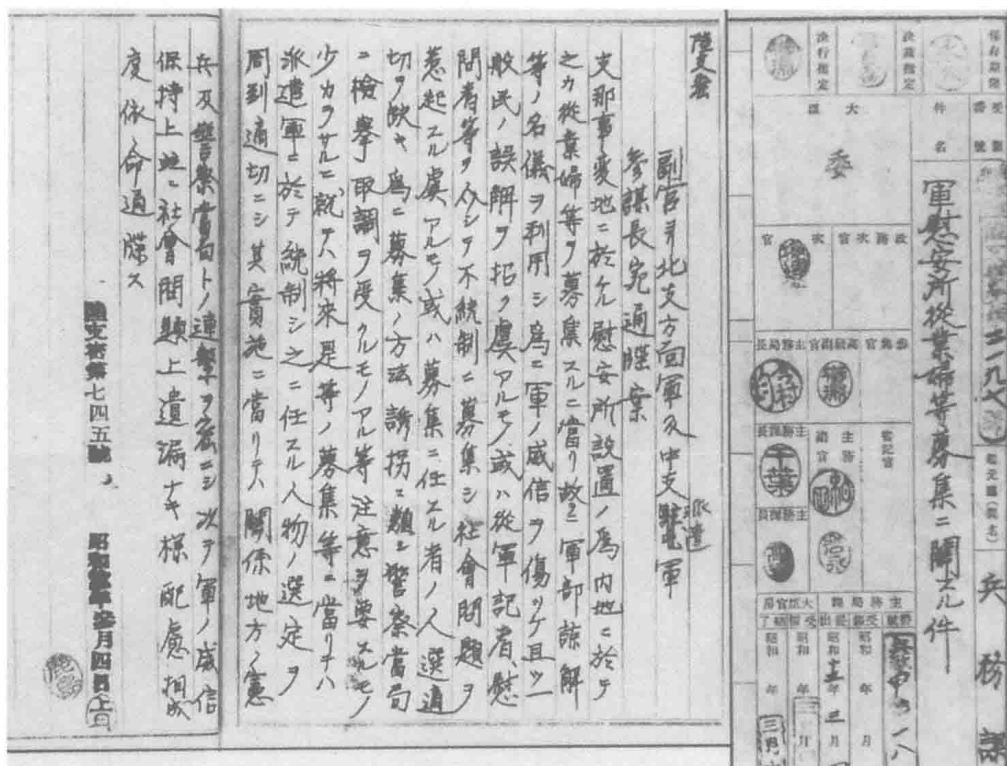 兵務課
軍慰安所従業婦等募集ニ関スル件
件名
決裁指定
決行指定
大臣
委
次官
政務次官
主務局長
高級副官
参与官
主務課長
主務副官
書記官
主務課員
主務局課
大臣官房
昭和 年 月
陸支密
副官ヨリ北支方面軍及中支派遣軍
参謀長宛通牒案
支那事変地ニ於ケル慰安所設置ノ為内地ニ於テ
之カ従業婦等ヲ募集スルニ當リ故ラニ軍部諒解
等ノ名儀ヲ利用シ為ニ軍ノ威信ヲ傷ツケ且ツ一
般民ノ誤解ヲ招ク虞アルモノ或ハ従軍記者、慰
問者等ヲ介シテ不統制ニ募集シ社會問題ヲ
惹起スル虞アルモノ或ハ募集ニ任スル者ノ人選適
切ヲ欠キ為ニ募集ノ方法誘拐ニ類シ警察當局
ニ檢挙取調ヲ受クルモノアル等注意ヲ要スルモノ
少カラサルニ就テハ将来是等ノ募集等ニ當リテハ
派遣軍ニ於テ統制シ之ニ任スル人物ノ選定ヲ
周到適切ニシ其實施ニ當リテハ関係地方ノ憲
兵及警察當局トノ連繋ヲ密ニシ次テ軍ノ威信
保持上並ニ社會問題上遺漏ナキ様配慮相成
度依命通牒ス
陸支密第七四五號 昭和拾参年参月四日